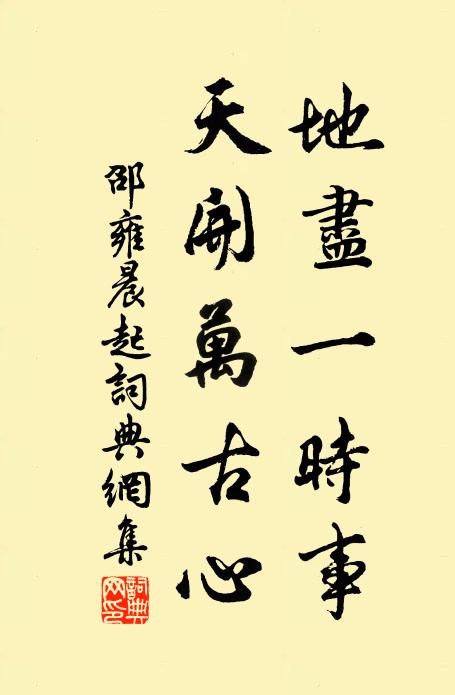 地盡一時事
天開萬古心
邵雍晨起詞典網集
詞典
网印